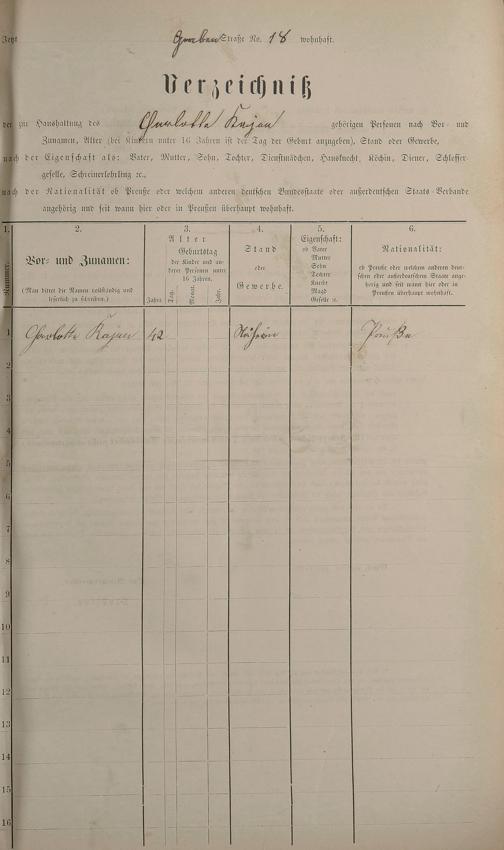 Jetzt Graben Straße No. 18 wohnhaft.
Verzeichniß
der zur Haushaltung des Charlotte Kajan gehörigen Personen nach Vor- und
Zunamen, Alter (bei Kindern unter 16 Jahren ist der Tag der Geburt anzugeben), Stand oder Gewerbe,
nach der Eigenschaft als: Vater, Mutter, Sohn, Tochter, Dienstmädchen, Hausknecht, Köchin, Diener, Schlosser-
geselle, Schreinerlehrling ꝛc.,
nach der Nationalität ob Preuße oder welchem anderen deutschen Bundesstaate oder außerdeutschen Staats-Verbande
angehörig und seit wann hier oder in Preußen überhaupt wohnhaft.
1.
Nummer.
2.
Vor- und Zunamen:
(Man bittet die Namen vollständig und
leserlich zu schreiben.)
3.
Alter
Geburtstag
der Kinder und an-
derer Personen unter
16 Jahren.
Jahre.
Tag.
Monat.
Jahr.
4.
Stand
oder
Gewerbe.
5.
Eigenschaft:
ob Vater
Mutter
Sohn
Tochter
Knecht
Magd
Geselle ꝛc.
6.
Nationalität:
ob Preuße oder welchem anderen deut-
schen oder außerdeutschen Staate ange-
hörig und seit wann hier oder in
Preußen überhaupt wohnhaft.
1 Charlotte Kajan 42 Näherin Preuße
2
3
4
5
6
7
8
9
10
11
12
13
14
15
16